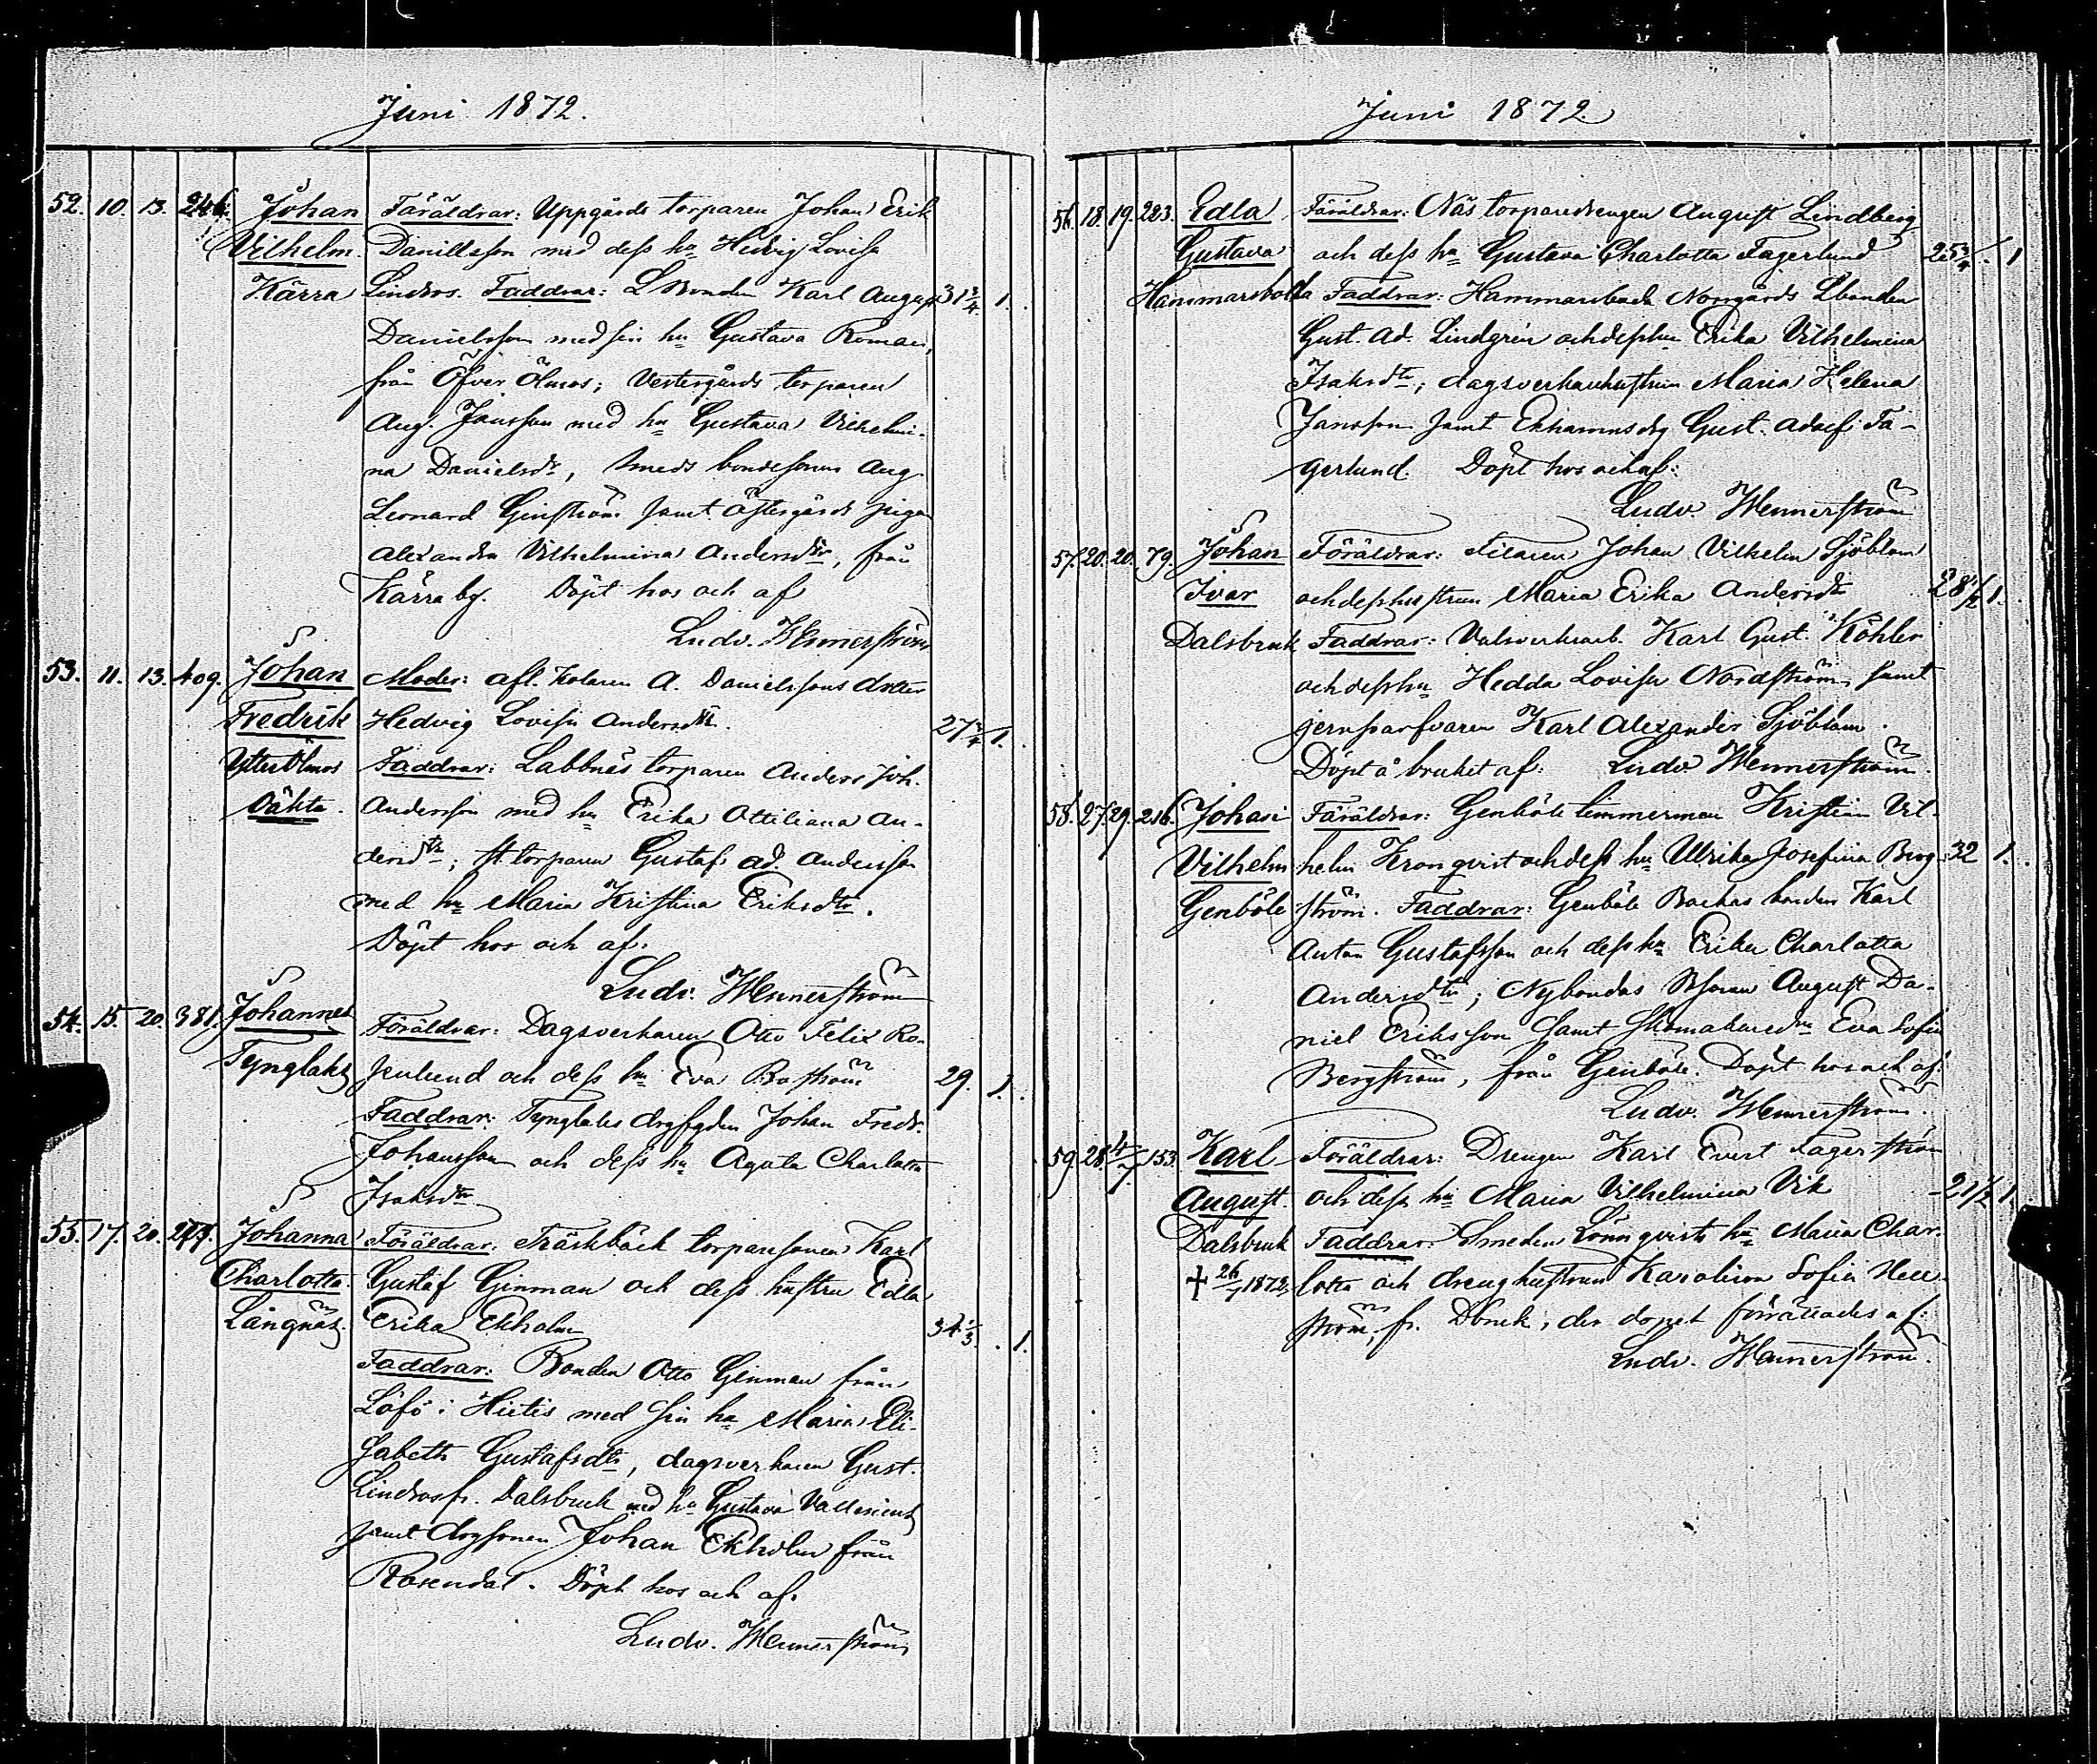 Juni 1872.
52. 10. 13. 246. Johan Föräldrar: Uppgårds torparen Johan Erik
Vilhelm. Danielsson med dess hu Hedvig Lovisa
Kärra Lindros. Faddrar: L Bonden Karl August 31 3/4 1.
Danielsson med sin hu Gustava Roman,
från Öfver Ölmos; Vestergårds torparen
Aug. Jansson med hu Gustava Vilhelmi-
na Danielsdr, Smeds bondesonen Aug.
Leonard Ginström samt Östergårds pigan
Alexandra Vilhelmina Andersdtr, från
Kärra by. Döpt hos och af
Ludv. Wennerström
53. 11. 13. 409. Johan Moder: afl. Kolaren A. Danielssons dotter
Fredrik Hedvig Lovisa Andersdtr. 27 3/4 1.
Ytter Ölmos Faddrar: Labbnäs torparen Anders Joh.
oäkta. Andersson med hu Erika Ottiliana An-
dersdtr; st. torparen Gustaf Ad. Andersson
med hu Maria Kristina Eriksdtr.
Döpt hos och af.
Ludv. Wennerström
54. 15. 20. 381. Johannes Föräldrar: Dagsverkaren Otto Felix Ro-
Tynglaks senlund och dess hu Eva Boström 29. 1.
Faddrar: Tynglaks Johan Fredr.
Johansson och dess hu Agata Charlotta
Isaksdtr
55. 17. 20. Johanna Föräldrar: Träskbäck torparesonen Karl
Charlotta. Gustaf Ginman och dess hustru Edla
Långnäs Erika Ekholm 34 1/3. 1.
Faddrar: Bonden Otto Ginman från
Löfö i Hiitis med sin hu Maria Eli-
sabeth Gustafsdtr, dagsverkaren Gust.
Lindros fr. Dalsbruk med hu Gustava
samt Johan Ekholm från
Rosendal. Döpt hos och af.
Ludv. Wennerström
Juni 1872.
56. 18. 19. 223. Edla Föräldrar: Näs torparedrengen August Lindberg
Gustava och dess hu Gustava Charlotta Fagerlund 25 3/4. 1
Hammarsboda Faddrar: Hammarsboda Norrgårds Lbonden
Gust. Ad. Lindgrén och dess hu Erika Vilhelmina
Isaksdtr; dagsverkarehustrun Maria Helena
Jansson samt Gust. Adolf Fa-
gerlund. Döpt hos och af:
Ludv. Wennerström
57. 20. 20. 79. Johan Föräldrar: Filaren Johan Vilhelm Sjöblom
Ivar och dess hustrun Maria Erika Andersdtr 28 1/2 1.
Dalsbruk Faddrar: Valsverksarb. Karl Gust. Köhler
och dess hu Hedda Lovisa Nordström samt
Karl Alexander Sjöblom.
Döpt å bruket af: Ludv. Wennerström.
58. 27. 29. 216. Johan Föräldrar: Genböle timmerman Kristian Vil-
Vilhelm helm Kronqvist och dess hu Ulrika Josefina Berg- 32 1.
Genböle ström. Faddrar: Genböle Backas bonden Karl
Anton Gustafsson och dess hu Erika Charlotta
Andersdtr; Nybondas August Da-
niel Eriksson samt Eva Sofia
Bergström, från Genböle. Döpt hos och af:
Ludv. Wennerström.
59. 28. 4/7. 153. Karl Föräldrar: Drengen Karl Evert Fagerström
August. och dess hu Maria Vilhelmina Vik 21 1/2 1.
Dalsbruk Faddrar: Smeden Lönnqvists hu Maria Char-
+ 26/7 1872, lotta och drenghustrun Karolina Sofia Hell-
ström, fr. Dbruk, der dopet förrättades af:
Ludv. Wennerström.